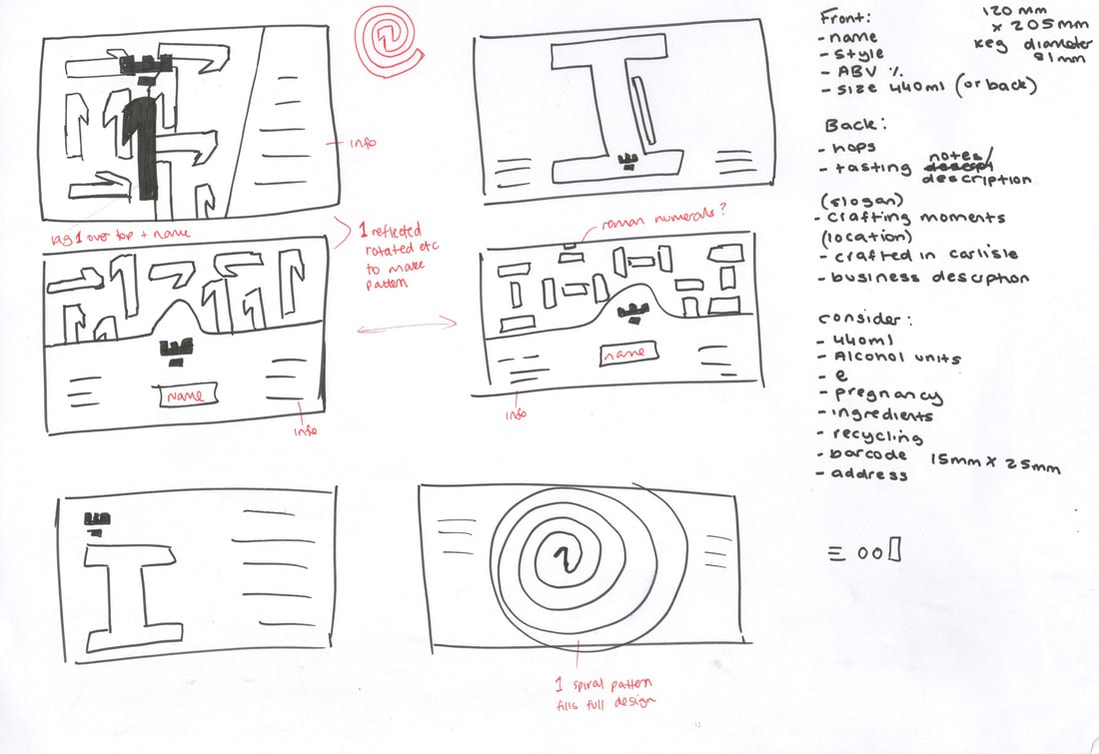 info
big 1 over top + name
1 reflected
rotated etc
to make
pattern
name
info
roman numerals?
name
info
1 spiral pattern
fills full design
Front:
- name
- style
- ABV %
- size 440ml (or back)
120 mm
x 205mm
keg diameter
81mm
Back:
- hops
- tasting notes/
description
(slogan)
- crafting moments
(location)
- crafted in carlisle
- business description
consider:
- 440ml
- Alcohol units
- e
- pregnancy
- ingredients
- recycling
- barcode 15mm x 25mm
- address